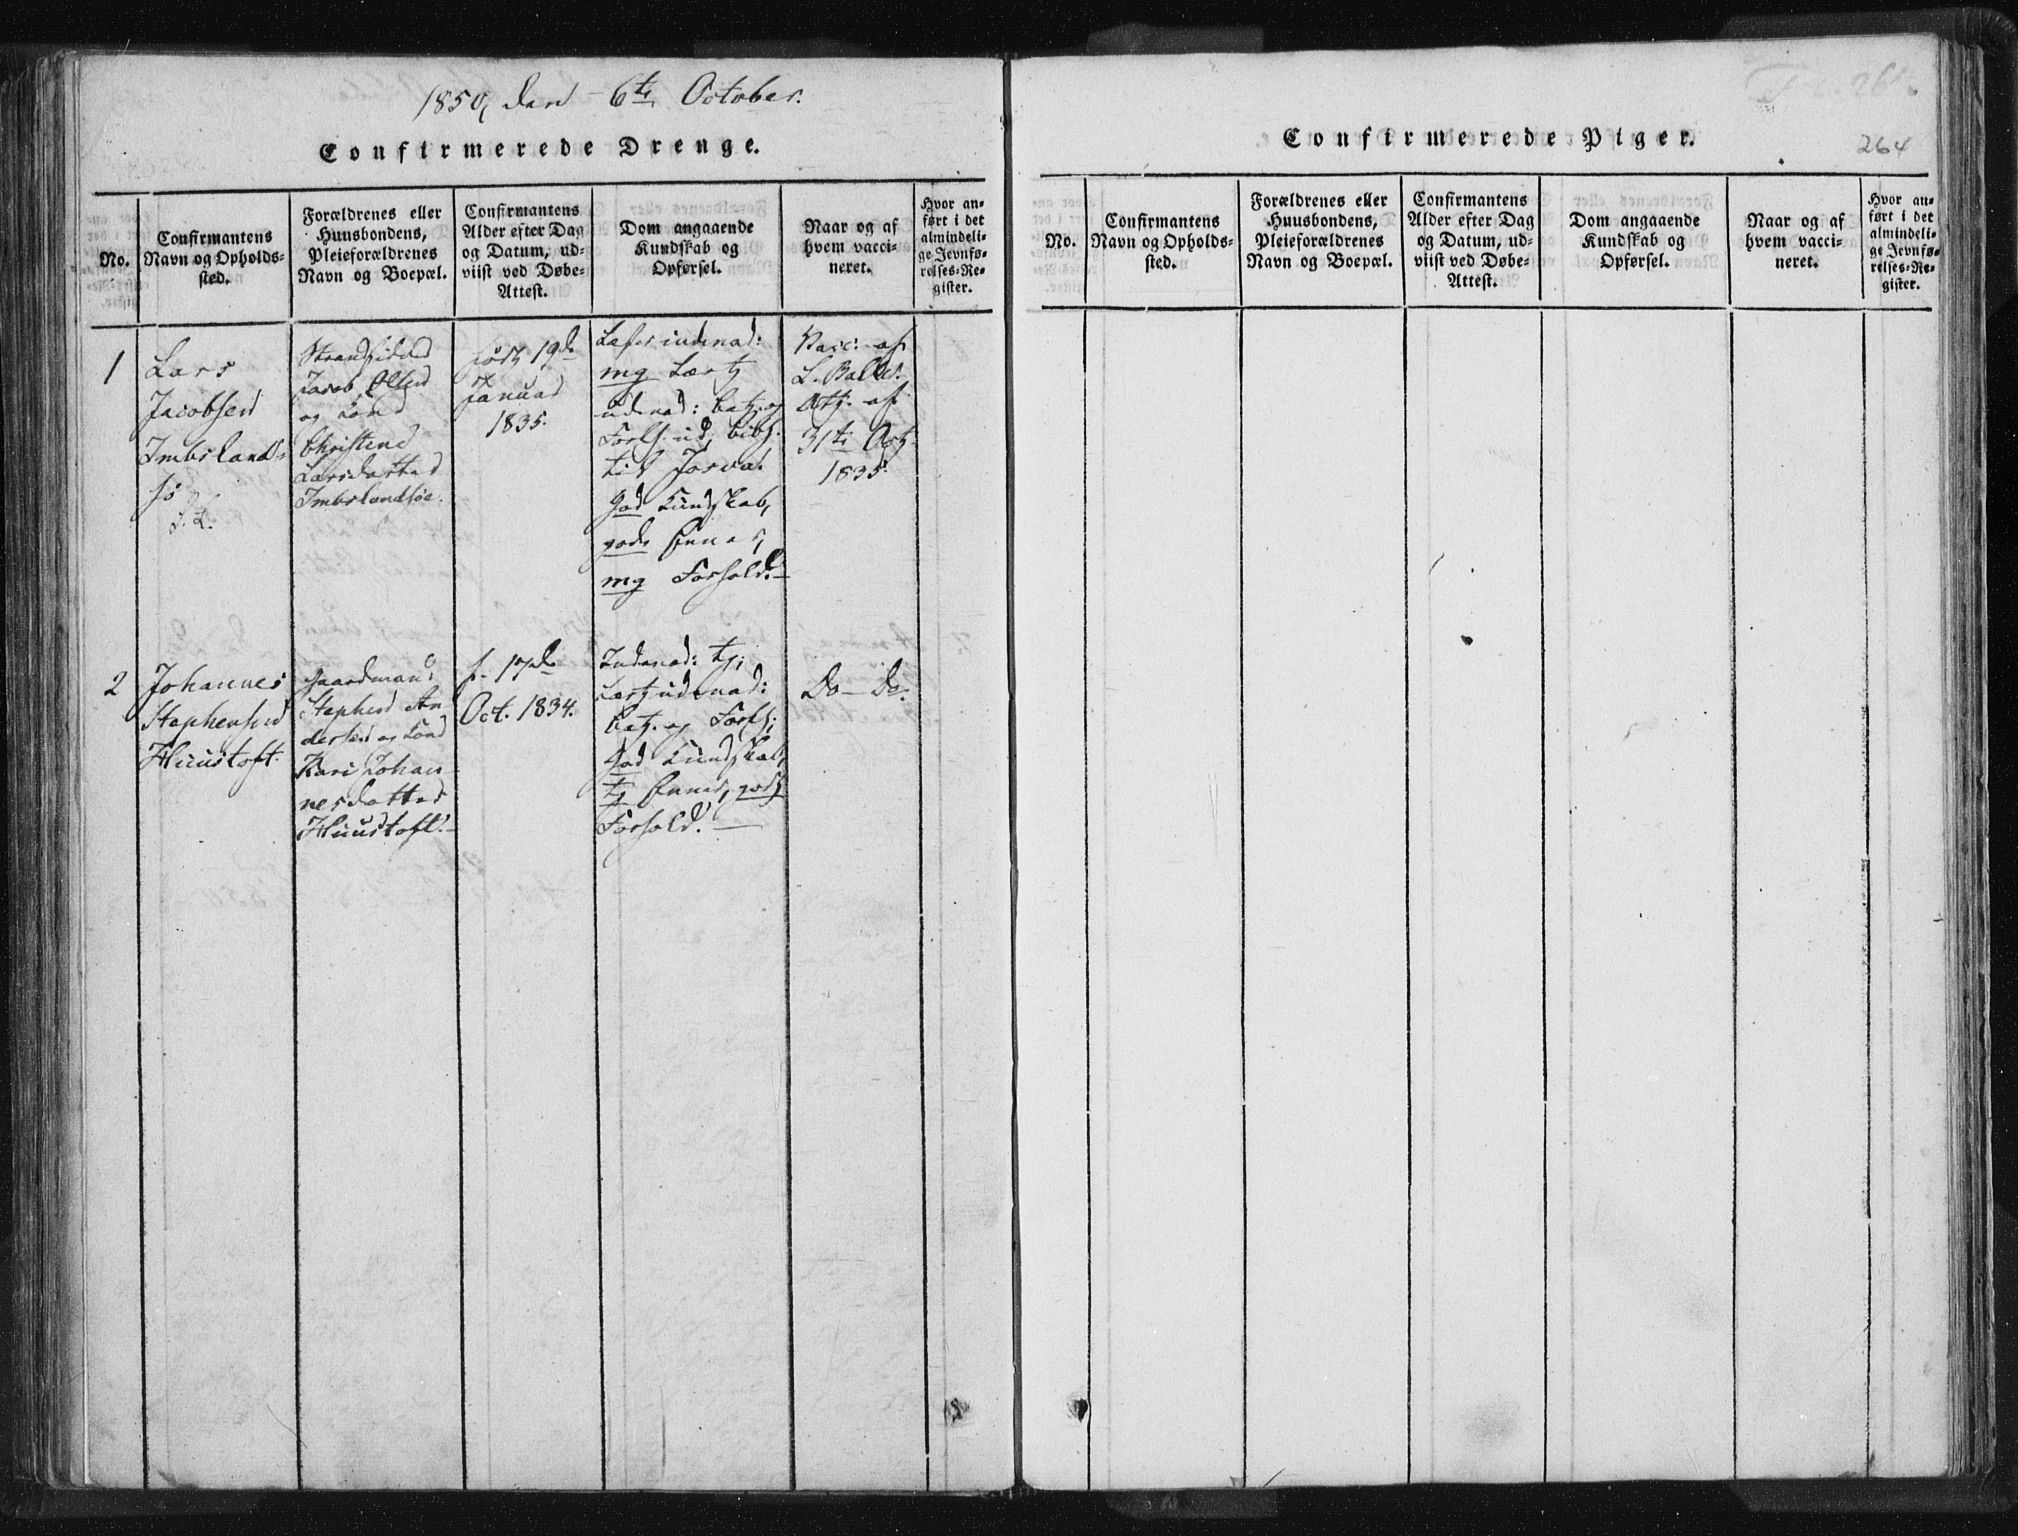 1850, den 6te October.
Confirmerede Drenge.
No.
Confirmantens
Navn og Opholds-
sted.
Forældrenes eller
Huusbondens,
Pleieforældrenes
Navn og Boepæl.
Confirmantens
Alder efter Dag
og Datum, ud-
viist ved Døbe-
Attest.
Dom angaaende
Kundskab og
Opførsel.
Naar og af
hvem vacci-
neret.
Hvor an-
ført i det
almindeli-
ge Jevnfø-
relses-Re-
gister.
1
Lars
Jacobsen
Imbsland-
sø
Strandsidder
Jacob Olsen
og Kone
Christene
Larsdatter
Imbslandsøe.
født 19de
Januar
1835.
Læser indenad:
mg Lært
udenad: Cat. og
Forkl. ud, bibh.
til
God Kundskab,
gode Evner,
mg Forhold.
Vacc. af
L. Balle.
Att. af
31te Oct.
1835.
2
Johannes
Stephensen
Huustoft.
Gaardmand
Stephen An
dersen og Kone
Kari Johan
nesdatter
Huustoft.
f. 17de
Oct. 1834.
Indenad: tg;
Lært udenad:
Cat. og Forkl.
God Kundskab,
tg Evner, godt
Forhold.
Do - Do.
Confirmerede Piger.
264
No.
Confirmantens
Navn og Opholds-
sted.
Forældrenes eller
Huusbondens,
Pleieforældrenes
Navn og Boepæl.
Confirmantens
Alder efter Dag
og Datum, ud-
viist ved Døbe-
Attest.
Dom angaaende
Kundskab og
Opførsel.
Naar og af
hvem vacci-
neret.
Hvor an-
ført i det
almindeli-
ge Jevnfø-
relses-Re-
gister.